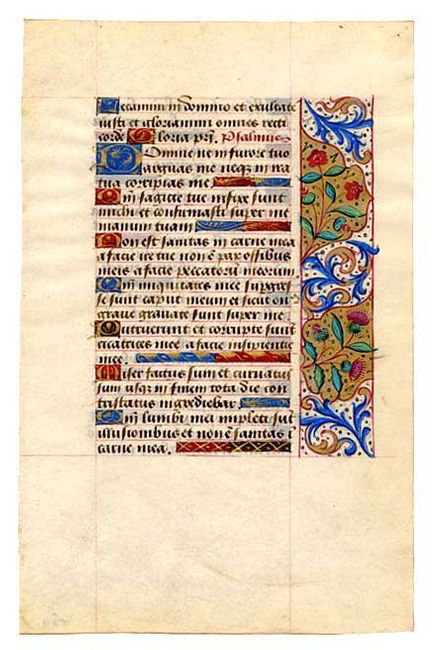 Letamini in domino et exultate
iusti et gloriamini omnes recti
corde Gloria pri. Psalmus
Domine ne in furore tuo
arguas me neqz in ira
tua corripias me
Qm sagitte tue infixe sunt
michi et confirmasti super me
manum tuam
Non est sanitas in carne mea
a facie ire tue non e pax ossibus
meis a facie peccatorum meorum
Qm iniquitates mee supergres
se sunt caput meum et sicut on
graue grauate sunt super me
Putruerunt et corrupte sunt
cicatrices mee a facie insipientie
mee
Miser factus sum et curuatus
sum usqz in finem tota die con
tristatus ingrediebar
Qm lumbi mei impleti sut
illusionibus et non e sanitas i
carne mea